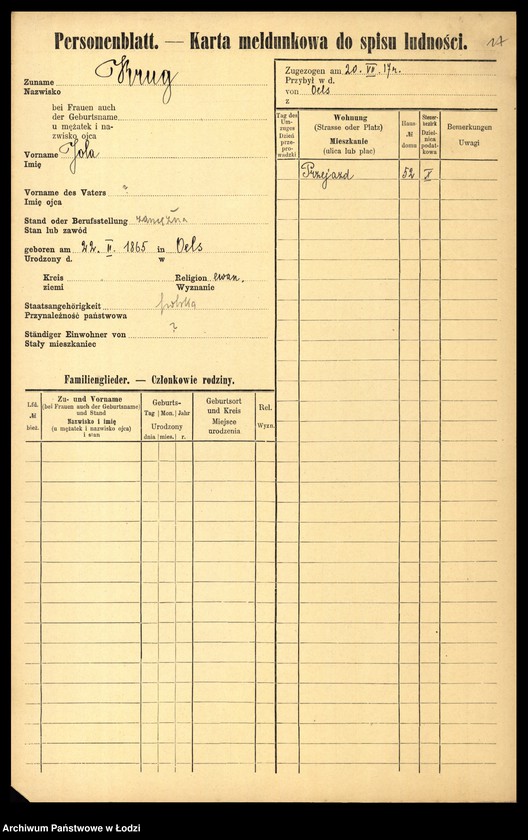 Personenblatt. — Karta meldunkowa do spisu ludności. 17
Zuname Krug
Nazwisko
bei Frauen auch
der Geburtsname
u mężatek i na-
zwisko ojca
Vorname Jola
Imię
Vorname des Vaters ?
Imię ojca
Stand oder Berufsstellung zamężna
Stan lub zawód
geboren am 22. II. 1865 in Oels
Urodzony d. w
Kreis Religion ewan.
ziemi Wyznanie
Staatsangehörigkeit polska
Przynależność państwowa
Ständiger Einwohner von ?
Stały mieszkaniec
Zugezogen am 20. VII. 17 r.
Przybył w d.
von Oels
z
Tag des Um-zuges Dzień prze-pro-wadzki
Wohnung (Strasse oder Platz) Mieszkanie (ulica lub plac)
Haus- № domu
Steuer-bezirk Dziel-nica podat-kowa
Bemerkungen Uwagi
Przejazd 52 X
Familienglieder. — Członkowie rodziny.
Lfd. № bież.
Zu- und Vorname (bei Frauen auch der Geburtsname) und Stand Nazwisko i imię (u mężatek i nazwisko ojca) i stan
Geburts- Tag Mon. Jahr Urodzony dnia mies. r.
Geburtsort und Kreis Miejsce urodzenia
Rel. Wyzn.
Archiwum Państwowe w Łodzi